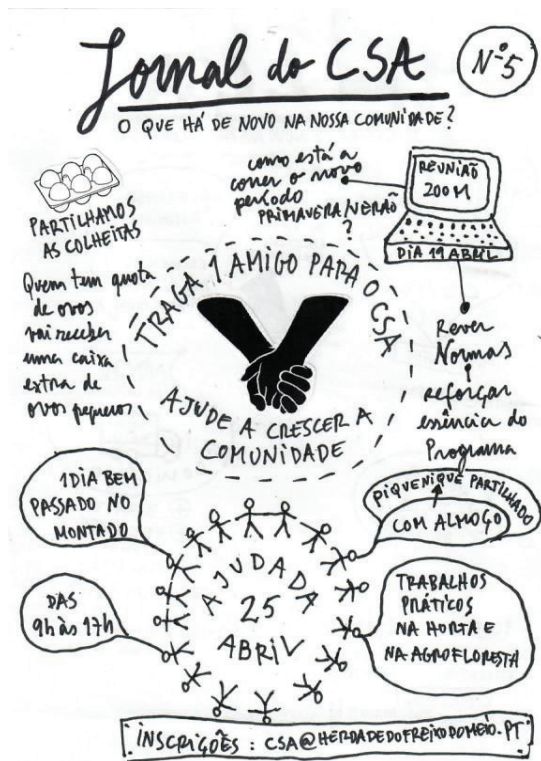 Jornal do CSA
Nº5
O QUE HÁ DE NOVO NA NOSSA COMUNIDADE?
PARTILHAMOS
AS COLHEITAS
Quem tem quota
de ovos
vai receber
uma caixa
extra de
ovos pequenos
como está a
correr o novo
período
PRIMAVERA/VERÃO
?
REUNIÃO
ZOOM
DIA 19 ABRIL
Rever
Normas
reforçar
essência do
Programa
TRAGA 1 AMIGO PARA O CSA
AJUDE A CRESCER A
COMUNIDADE
1 DIA BEM
PASSADO NO
MONTADO
PIQUENIQUE PARTILHADO
COM ALMOÇO
DAS
9h às 17h
AJUDADA
25
ABRIL
TRABALHOS
PRÁTICOS
NA HORTA E
NA AGROFLORESTA
INSCRIÇÕES : CSA@HERDADEDOFREIXODOMEIO.PT